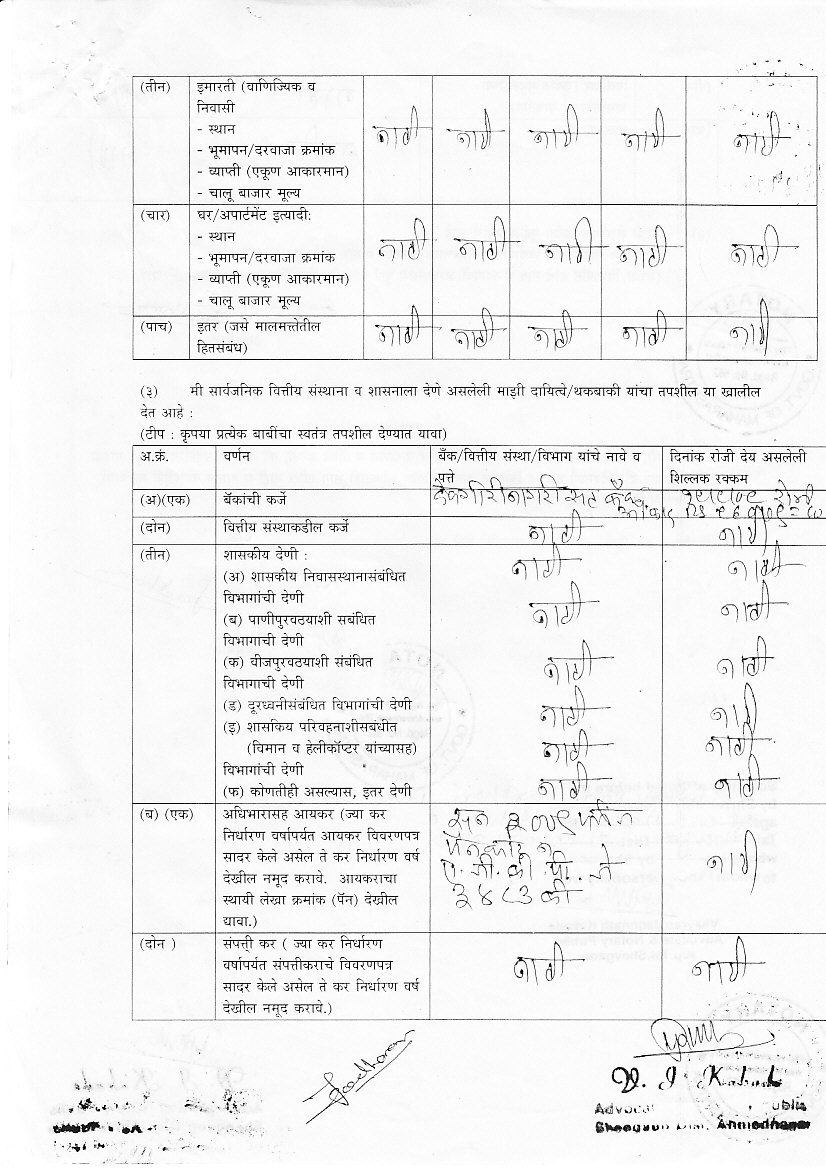 (तीन) इमारती (वाणिज्यिक व
निवासी
- स्थान
- भूमापन/दरवाजा क्रमांक
- व्याप्ती (एकूण आकारमान)
- चालू बाजार मूल्य
नाही नाही नाही नाही नाही
(चार) घर/अपार्टमेंट इत्यादी:
- स्थान
- भूमापन/दरवाजा क्रमांक
- व्याप्ती (एकूण आकारमान)
- चालू बाजार मूल्य
नाही नाही नाही नाही नाही
(पाच) इतर (जसे मालमत्तेतील
हितसंबंध)
नाही नाही नाही नाही नाही
(३) मी सार्वजनिक वित्तीय संस्थाना व शासनाला देणे असलेली माझी दायित्वे/थकबाकी यांचा तपशील या खालील
देत आहे :
(टीप : कृपया प्रत्येक बाबींचा स्वतंत्र तपशील देण्यात यावा)
अ.क्रं. वर्णन बँक/वित्तीय संस्था/विभाग यांचे नावे व
पत्ते
दिनांक रोजी देय असलेली
शिल्लक रक्कम
(अ)(एक) बॅकांची कर्जे
(दोन) वित्तीय संस्थाकडील कर्जे नाही नाही
(तीन) शासकीय देणी : नाही नाही
(अ) शासकीय निवासस्थानासंबंधित
विभागांची देणी
नाही नाही
(ब) पाणीपुरवठयाशी सबंधित
विभागाची देणी
(क) वीजपुरवठयाशी संबंधित नाही नाही
विभागाची देणी
(ड) दूरध्वनीसंबंधित विभागांची देणी नाही नाही
(इ) शासकिय परिवहनाशीसबंधीत
(विमान व हेलीकॉप्टर यांच्यासह) नाही नाही
विभागांची देणी
(फ) कोणतीही असल्यास, इतर देणी नाही नाही
(ब) (एक) अधिभारासह आयकर (ज्या कर
निर्धारण वर्षापर्यत आयकर विवरणपत्र
सादर केले असेल ते कर निर्धारण वर्ष
देखील नमूद करावे. आयकराचा
स्थायी लेखा क्रमांक (पॅन) देखील
द्यावा.)
सन २००९
नाही
(दोन ) संपत्ती कर ( ज्या कर निर्धारण
वर्षापर्यत संपत्तीकराचे विवरणपत्र
सादर केले असेल ते कर निर्धारण वर्ष
देखील नमूद करावे.)
नाही नाही